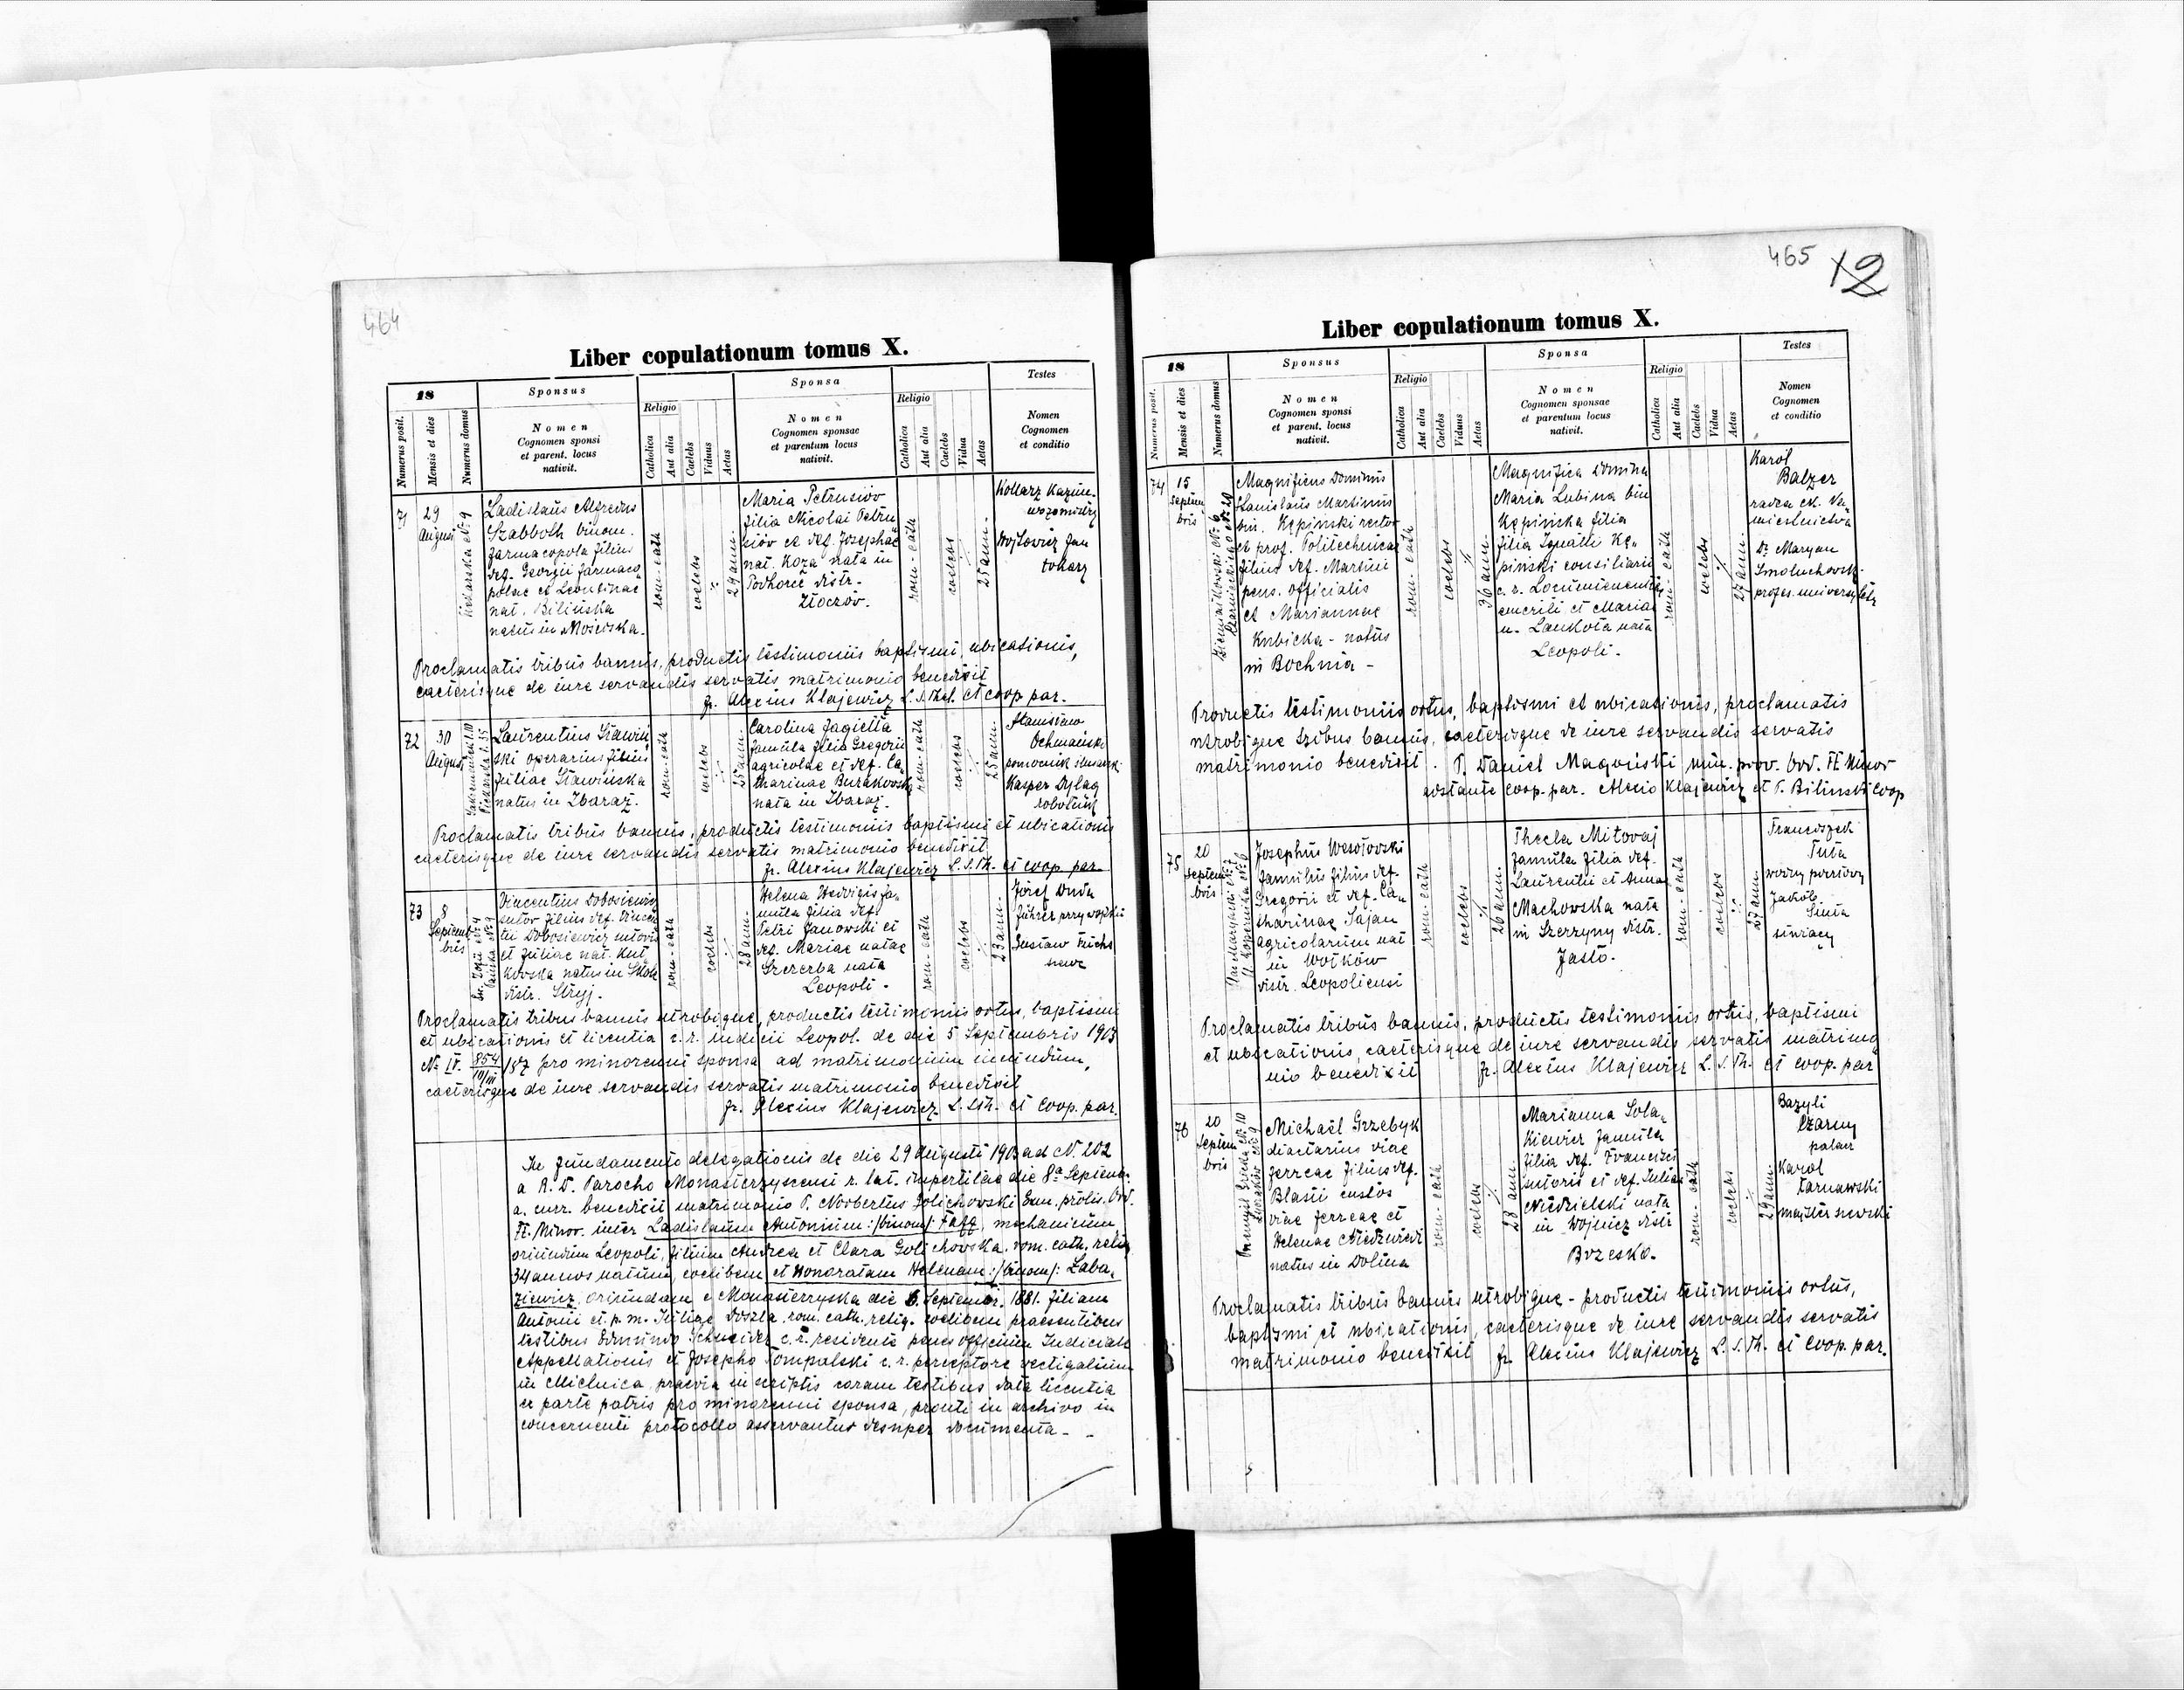 464
Liber copulationum tomus X.
18
Sponsus
Sponsa
Testes
Numerus posit.
Mensis et dies
Numerus domus
Nomen
Cognomen sponsi
et parent. locus
nativit.
Religio
Catholica
Aut alia
Caelebs
Viduus
Aetas
Nomen
Cognomen sponsae
et parentum locus
nativit.
Religio
Catholica
Aut alia
Caelebs
Vidua
Aetas
Nomen
Cognomen
et conditio
71
29
Augusti
Ladislaus Alfredus
Szabboth binom.
farmacopola filius
def. Georgii farmaco
polae et Leontinae
nat. Bilińska
natus in Mościska.
rom-cath
coelebs
29 ann.
Maria Petrusiów
filia Nicolai Petru
siów et def. Josephae
nat. Koza nata in
Podhorce distr.
Złoczów.
rom-cath
coelebs
25 ann.
Kollarz Kazim.
wozomistrz
Wojtowicz Jan
tokarz
Proclamatis tribus bannis, productis testimoniis baptismi, ubicationis,
caeterisque de iure servandis servatis matrimonio benedixit
fr. Alexius Klajewicz L. S. Theol. et coop par.
72
30
Augusti
Laurentius Sławiń
ski operarius filius
Juliae Sławińska
natus in Zbaraż.
rom-cath
coelebs
25 ann.
Carolina Jagiełła
famula filia Gregorii
agricolae et def. Ca
tharinae Burakowska
nata in Zbaraż.
rom-cath
coelebs
25 ann.
Stanisław
Ochmański
pomocnik ślusarski
Kasper Dyląg
robotnik
Proclamatis tribus bannis, productis testimoniis baptismi et ubicationis
caeterisque de iure servandis servatis matrimonio benedixit
fr. Alexius Klajewicz L. S. Th. et coop par.
73
8
Septem
bris
Vincentius Dobosiewicz
sutor filius def. Vincen
tii Dobosiewicz sutoris
et Juliae nat. Kul
kowska natus in Skole
distr. Stryj.
rom-cath
coelebs
28 ann.
Helena Hedvigis fa
mula filia def.
Petri Janowski et
def. Mariae natae
Szczerba nata
Leopoli.
rom-cath
coelebs
23 ann.
Józef Duda
Gustaw Fuchs
szewc
Proclamatis tribus bannis utrobique, productis testimoniis ortus, baptismi
et ubicationis et licentia c. r. iudicii Leopol. de die 5 Septembris 1903
№ IV. 854/10/III /87 pro minorenni sponsa ad matrimonium ineundum,
caeterisque de iure servandis servatis matrimonio benedixit
fr. Alexius Klajewicz L. S. Th. et coop. par.
In fundamento delegationis de die 29 Augusti 1903 ad N. 202
a R. D. Parocho Monasterzyscensi r. lat. impertitae die 8ª Septem.
a. curr. benedicii matrimonio P. Norbertus Golichowski Exm. prolis. Ord.
Fr. Minor. inter Ladislaum Antonium :/binom/: Faff, mechanicum
oriundum Leopoli, filium Andrea et Clara Golichowska. rom. cath. relig.
34 annos natum, coelibem et Honoratam Helenam :/binom/: Laba
ziewicz oriundam e Monasterzyska die 6. Septembr. 1881. filiam
Antonii et p. m. Juliae Doszla. rom. cath. relig. coelibem praesentibus
testibus Edmundo Schneider c. r. residente penes officium Iudiciale
Appellationis et Josepho Tompalski c. r. perceptore vectigalium
in Mielnica, praevia in scriptis coram testibus data licentia
ex parte patris pro minorenni sponsa, prouti in archivo in
concernenti protocollo asservantur desuper documenta.
465
12
Liber copulationum tomus X.
18
Sponsus
Sponsa
Testes
Numerus posit.
Mensis et dies
Numerus domus
Nomen
Cognomen sponsi
et parent. locus
nativit.
Religio
Catholica
Aut alia
Caelebs
Viduus
Aetas
Nomen
Cognomen sponsae
et parentum locus
nativit.
Religio
Catholica
Aut alia
Caelebs
Vidua
Aetas
Nomen
Cognomen
et conditio
74
15
Septem
bris
Magnificus Dominus
Stanislaus Martinus
bin. Kępiński rector
et prof. Politechnicae
filius def. Martini
pens. officialis
et Mariannae
Kubicka - natus
in Bochnia -
rom-cath
coelebs
36 ann.
Magnifica Domina
Maria Lubina bin
Kępińska filia
filia Ignatii Kę
piński consiliarii
c. r. Locumtenentiae
emeriti et Mariae
n. Lankota nata
Leopoli.
rom-cath
coelebs
27 ann.
Karol
Balzer
radca ck. Na
miestnictwa
Dr Maryan
Smoluchowski
profes. uniwersytetu
Productis testimoniis ortus, baptismi et ubicationis, proclamatis
utrobique tribus bannis, caeterisque de iure servandis servatis
matrimonio benedixit. P. Daniel Magoński min. prov. Ord. FF Minor
adstante coop. par. Alexio Klajewicz et P. Biliński coop
75
20
Septem
bris
Josephus Wesołowski
famulus filius def.
Gregorii et def. Ca
tharinae Sajan
agricolarum nat
in Wołków
distr. Leopoliensi
rom-cath
coelebs
26 ann.
Thecla Mitoraj
famula filia def.
Laurentii et Annae
Machowska nata
in Szerzyny distr.
Jasło.
rom-cath
coelebs
27 ann.
Franciszek
Tuta
Jakób
Proclamatis tribus bannis, productis testimoniis ortus, baptismi
et ubicationis, caeterisque de iure servandis servatis matrimo
nio benedixit fr. Alexius Klajewicz L. S. Th. et coop. par
76
20
Septem
bris
Michaël Grzebyk
diactarius viae
ferreae filius def.
Blasii custos
viae ferreae et
Helenae Niedźwiedź
natus in Dolina
rom-cath
coelebs
28 ann.
Marianna Sola
kiewicz famula
filia def. Francisci
sutoris et def. Juliae
Niedzielski nata
in Wojnicz distr
Brzesko.
rom-cath
coelebs
29 ann.
Bazyli
Czarny
palacz
Karol
Tarnawski
majster szewski
Proclamatis tribus bannis utrobique - productis testimoniis ortus,
baptismi et ubicationis, caeterisque de iure servandis servatis
matrimonio benedixit fr. Alexius Klajewicz L. S. Th. et coop. par.